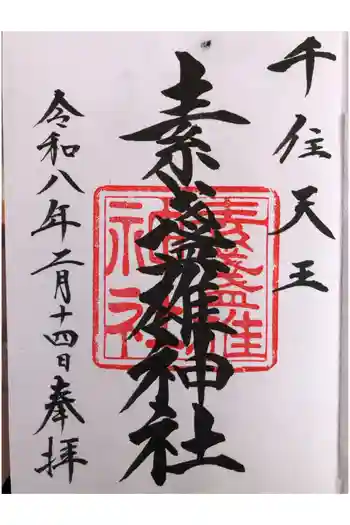 千住天王
素盞雄神社
令和八年二月十四日奉拝
素盞雄神社